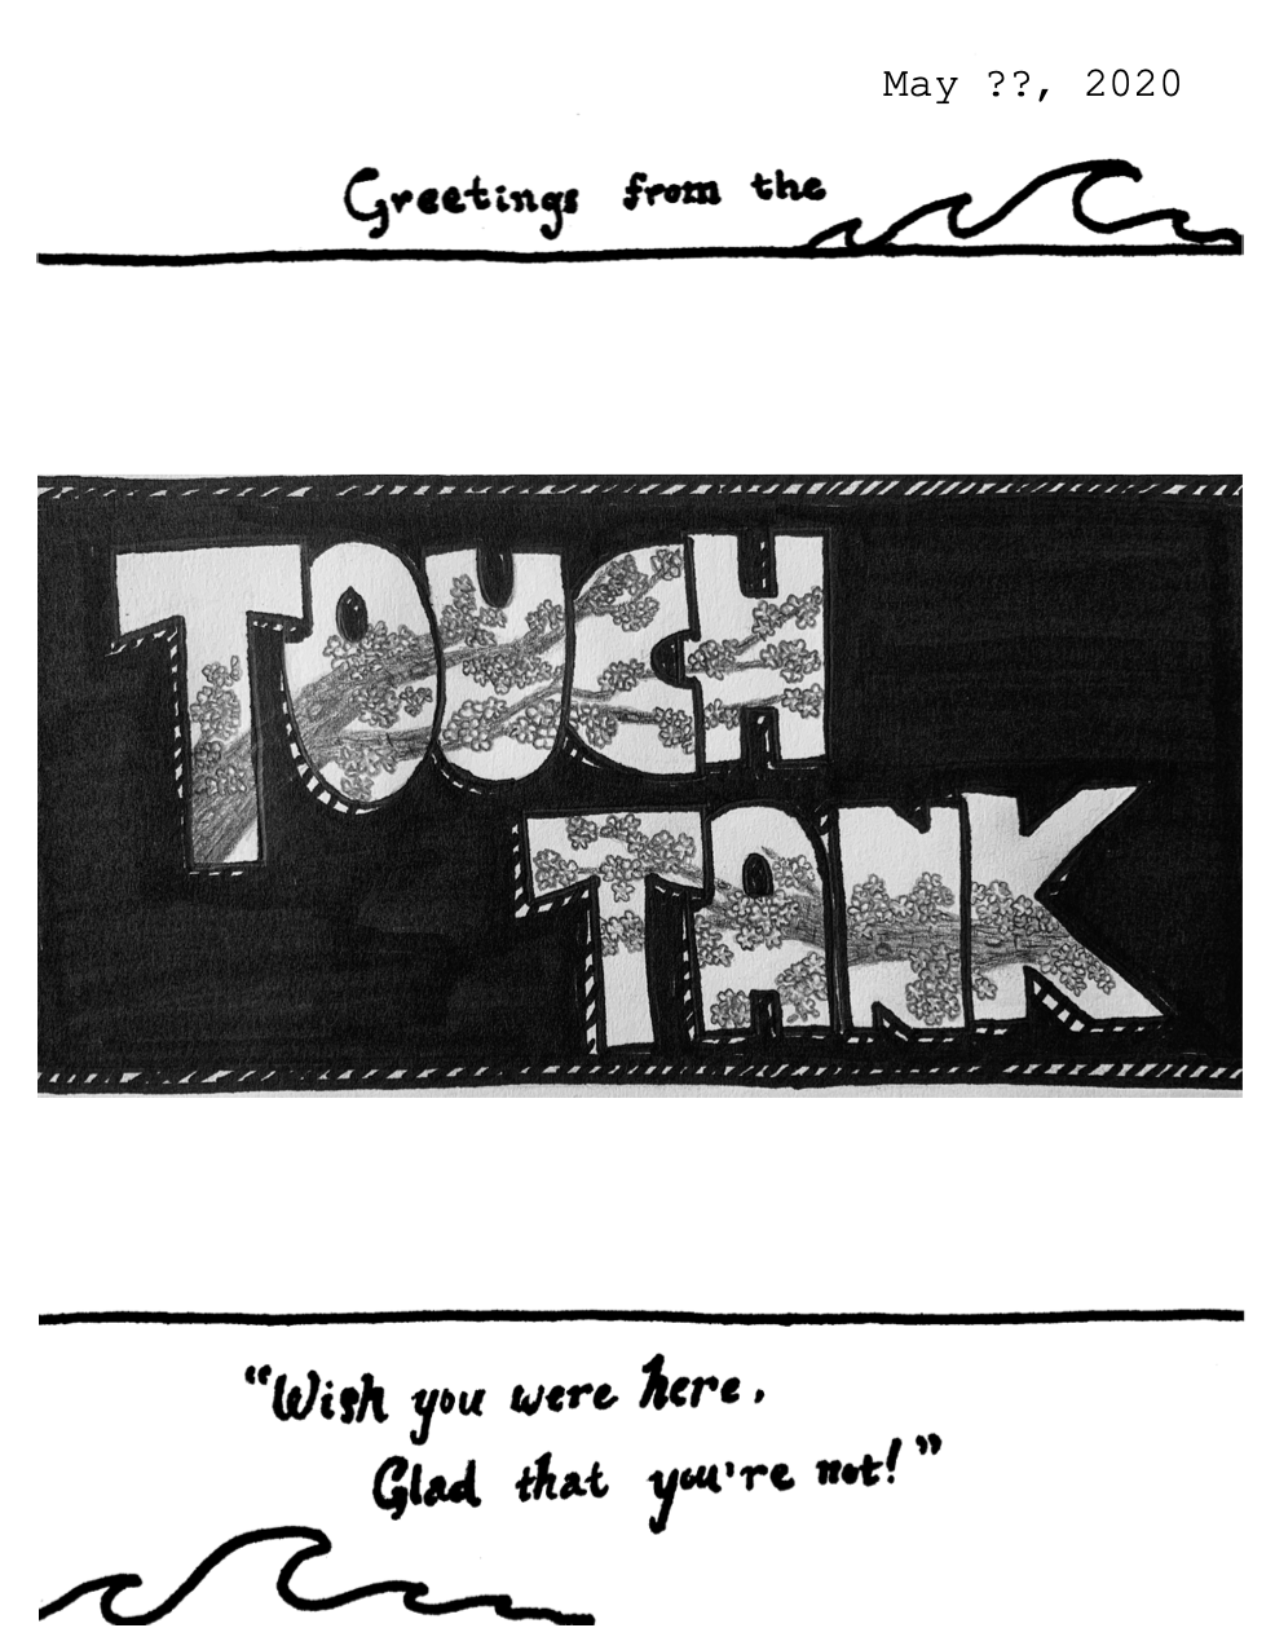 May ??, 2020
Greetings from the
TOUCH
TANK
"Wish you were here,
Glad that you're not!"